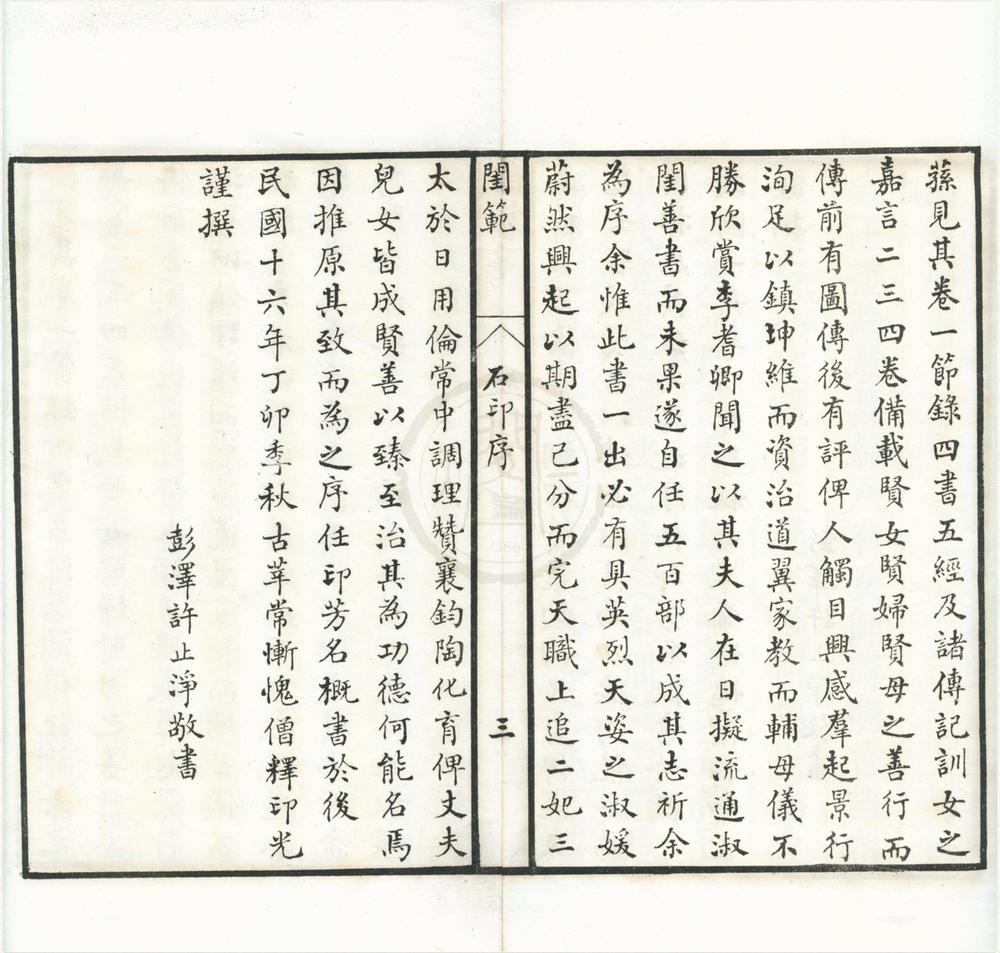 蓀見其卷一節錄四書五經及諸傳記訓女之
嘉言二三四卷備載賢女賢婦賢母之善行而
傳前有圖傳後有評俾人觸目興感羣起景行
洵足以鎮坤維而資治道翼家教而輔母儀不
勝欣賞李耆卿聞之以其夫人在日擬流通淑
閨善書而未果遂自任五百部以成其志祈余
為序余惟此書一出必有具英烈天姿之淑媛
蔚然興起以期盡己分而完天職上追二妃三
閨範 石印序 三
太於日用倫常中調理贊襄鈞陶化育俾丈夫
兒女皆成賢善以臻至治其為功德何能名焉
因推原其致而為之序任印芳名概書於後
民國十六年丁卯季秋古莘常慚愧僧釋印光
謹撰
彭澤許止淨敬書
1666